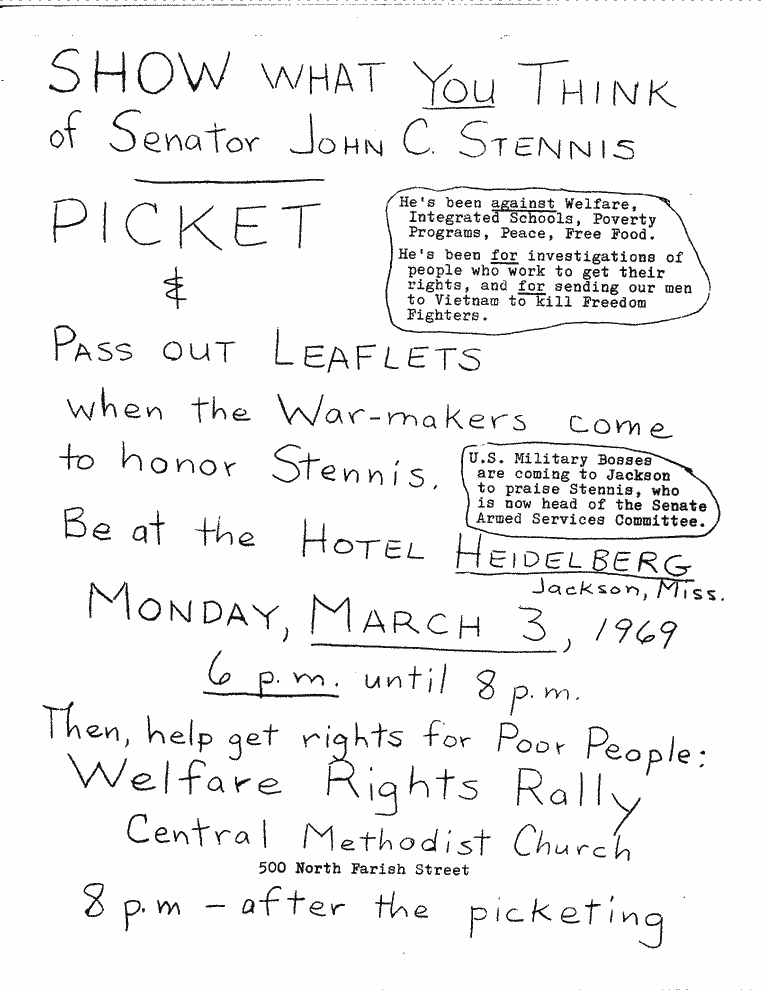 SHOW WHAT YOU THINK
of Senator JOHN C. STENNIS
PICKET
&
He's been against Welfare,
Integrated Schools, Poverty
Programs, Peace, Free Food.
He's been for investigations of
people who work to get their
rights, and for sending our men
to Vietnam to kill Freedom
Fighters.
PASS OUT LEAFLETS
when the War-makers come
to honor Stennis.
U.S. Military Bosses
are coming to Jackson
to praise Stennis, who
is now head of the Senate
Armed Services Committee.
Be at the HOTEL HEIDELBERG
Jackson, Miss.
MONDAY, MARCH 3, 1969
6 p.m. until 8 p.m.
Then, help get rights for Poor People:
Welfare Rights Rally
Central Methodist Church
500 North Farish Street
8 p.m – after the picketing